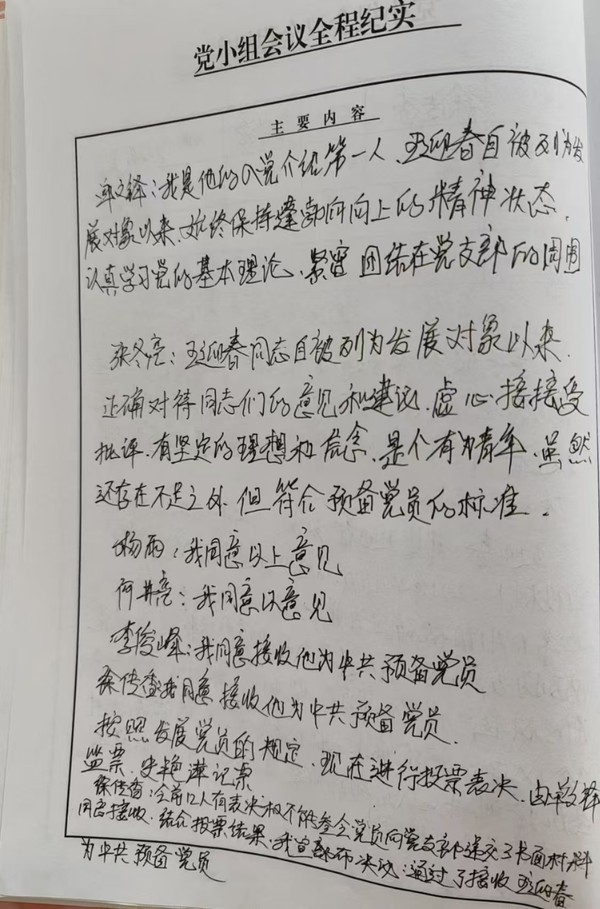 党小组会议全程纪实
主要内容
单文绎:我是他的入党介绍第一人,王迎春自被列为发
展对象以来,始终保持蓬勃向向上的精神状态,
认真学习党的基本理论、紧密团结在党支部的周围
张冬亮:王迎春同志自被列为发展对象以来,
正确对待同志们的意见和建议,虚心接接受
批评,有坚定的理想和信念,是个有为青年,虽然
还存在不足之处但符合预备党员的标准。
杨雨:我同意以上意见
何井亮:我同意以意见
李俊峰:我同意接收他为中共预备党员
徐传香我同意接收他为中共预备党员.
按照发展党员的规定,现在进行投票表决,由单文绎
监票,史艳津记票
徐传香:会前 人有表决权不能参会党员向党支部递交了书面材料
同意接收.结合投票结果,我宣布决议:通过了接收王迎春
为中共预备党员